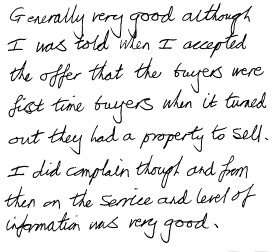 Generally very good although
I was told when I accepted
the offer that the buyers were
first time buyers when it turned
out they had a property to sell.
I did complain though and from
then on the service and level of
information was very good.